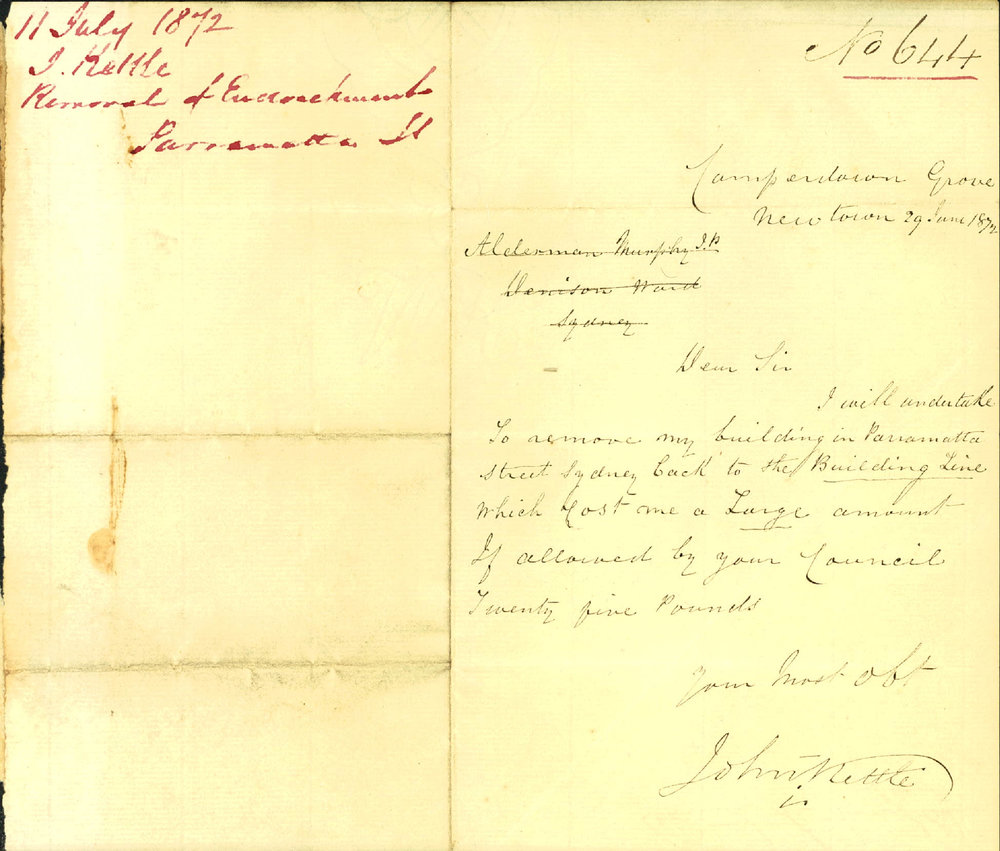 11 July 1872
J. Kettle
Removal of Encroachment
Parramatta St
No 644
Camperdown Grove
Newtown 29 June 1872
Alderman Murphy J.P
Denison Ward
Sydney
Dear Sir
I will undertake
To remove my building in Parramatta
street Sydney back to the Building Line
Which Cost me a Large amount
If allowed by your Council
Twenty five Pounds
Your Most Obt
John Kettle